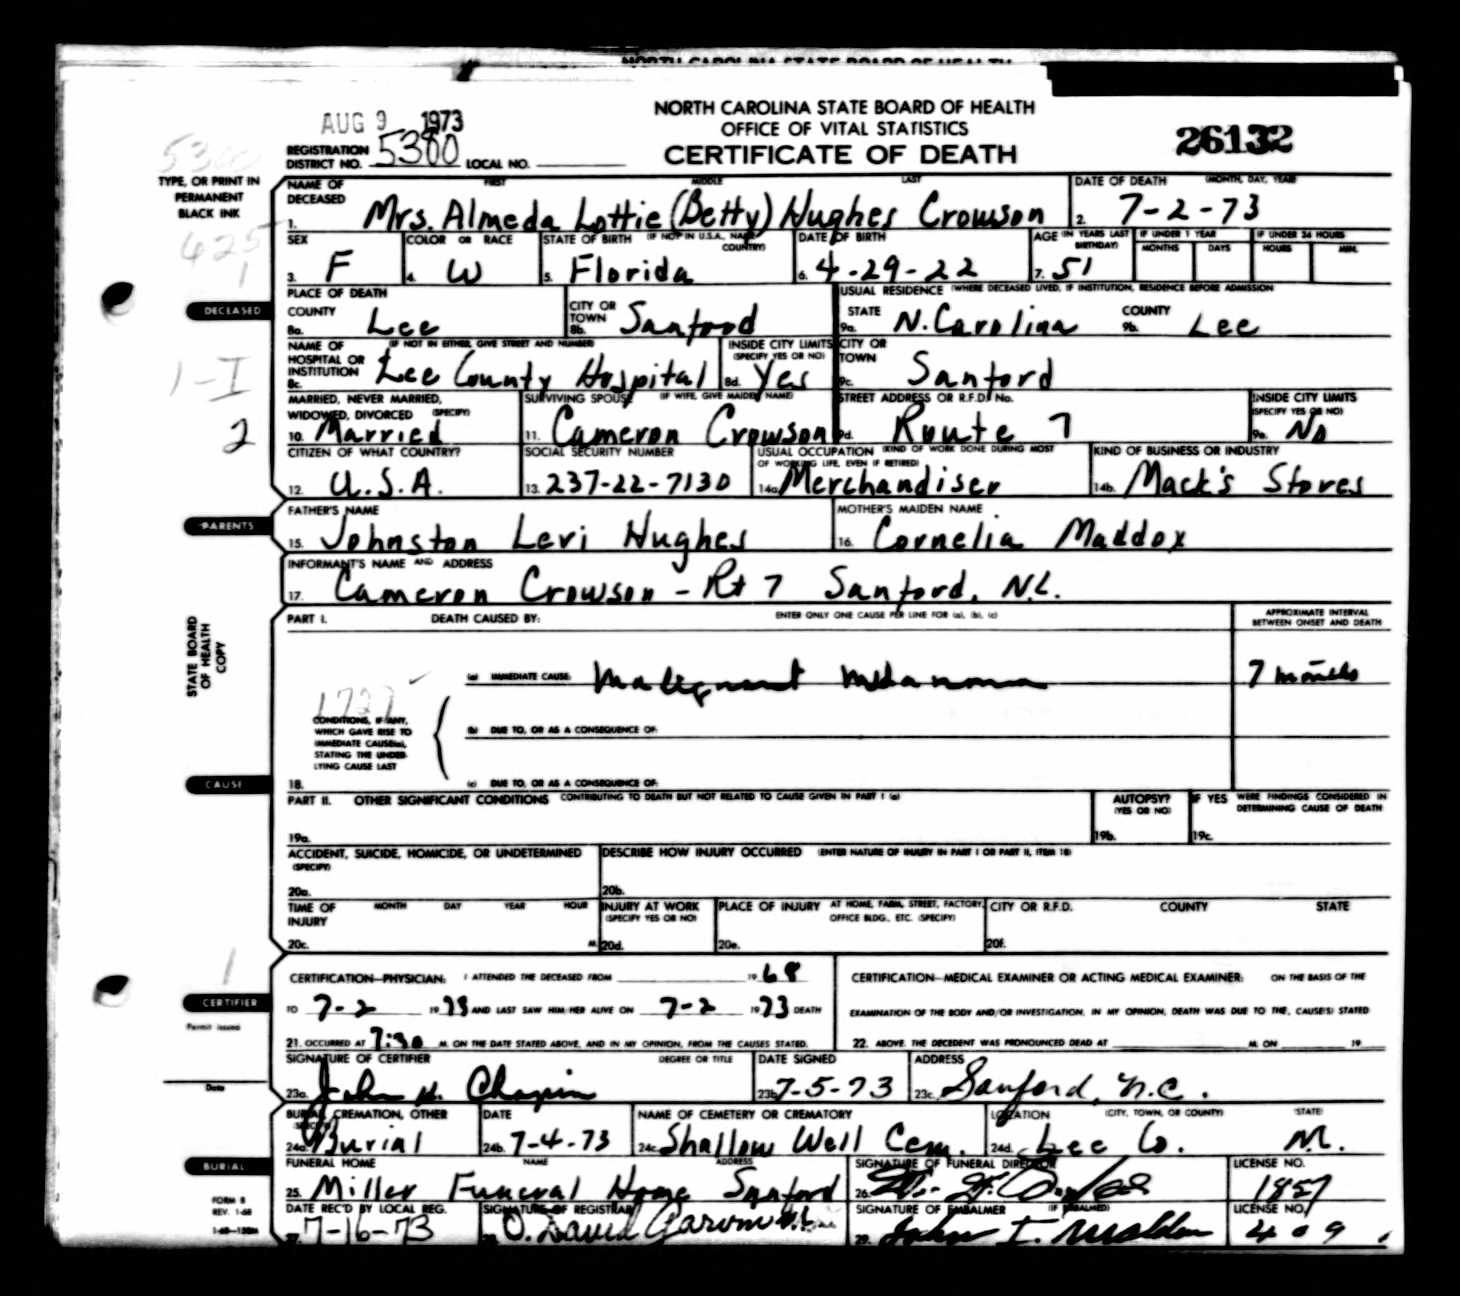 NORTH CAROLINA STATE BOARD OF HEALTH
AUG 9 1973
NORTH CAROLINA STATE BOARD OF HEALTH
OFFICE OF VITAL STATISTICS
CERTIFICATE OF DEATH
26132
REGISTRATION DISTRICT NO. 5380 LOCAL NO.
TYPE, OR PRINT IN
PERMANENT
BLACK INK
425
1
1-I
2
DECEASED
NAME OF DECEASED FIRST MIDDLE LAST
1. Mrs. Almeda Lottie (Betty) Hughes Crowson
DATE OF DEATH (MONTH, DAY, YEAR)
2. 7-2-73
SEX
3. F
COLOR OR RACE
4. W
STATE OF BIRTH (IF NOT IN U.S.A., NAME COUNTRY)
5. Florida
DATE OF BIRTH
6. 4-29-22
AGE (IN YEARS LAST BIRTHDAY)
7. 51
IF UNDER 1 YEAR
MONTHS DAYS
IF UNDER 24 HOURS
HOURS MIN.
PLACE OF DEATH
COUNTY
8a. Lee
CITY OR TOWN
8b. Sanford
USUAL RESIDENCE (WHERE DECEASED LIVED, IF INSTITUTION, RESIDENCE BEFORE ADMISSION
STATE
9a. N. Carolina
COUNTY
9b. Lee
NAME OF HOSPITAL OR INSTITUTION (IF NOT IN EITHER, GIVE STREET AND NUMBER)
8c. Lee County Hospital
INSIDE CITY LIMITS (SPECIFY YES OR NO)
8d. Yes
CITY OR TOWN
9c. Sanford
MARRIED, NEVER MARRIED, WIDOWED, DIVORCED (SPECIFY)
10. Married
SURVIVING SPOUSE (IF WIFE, GIVE MAIDEN NAME)
11. Cameron Crowson
STREET ADDRESS OR R.F.D. No.
9d. Route 7
INSIDE CITY LIMITS (SPECIFY YES OR NO)
9e. No
CITIZEN OF WHAT COUNTRY?
12. U.S.A.
SOCIAL SECURITY NUMBER
13. 237-22-7130
USUAL OCCUPATION (KIND OF WORK DONE DURING MOST OF WORKING LIFE, EVEN IF RETIRED)
14a. Merchandiser
KIND OF BUSINESS OR INDUSTRY
14b. Mack's Stores
PARENTS
FATHER'S NAME
15. Johnston Levi Hughes
MOTHER'S MAIDEN NAME
16. Cornelia Maddox
INFORMANT'S NAME AND ADDRESS
17. Cameron Crowson - Rt 7 Sanford, N.C.
STATE BOARD
OF HEALTH
COPY
PART I. DEATH CAUSED BY: ENTER ONLY ONE CAUSE PER LINE FOR (a), (b), (c)
APPROXIMATE INTERVAL BETWEEN ONSET AND DEATH
(a) IMMEDIATE CAUSE: Malignant Melanoma 7 months
CONDITIONS, IF ANY,
WHICH GAVE RISE TO
IMMEDIATE CAUSE(a),
STATING THE UNDER-
LYING CAUSE LAST
(b) DUE TO, OR AS A CONSEQUENCE OF:
CAUSE
18. (c) DUE TO, OR AS A CONSEQUENCE OF:
PART II. OTHER SIGNIFICANT CONDITIONS CONTRIBUTING TO DEATH BUT NOT RELATED TO CAUSE GIVEN IN PART I (a)
19a.
AUTOPSY? (YES OR NO)
19b.
IF YES WERE FINDINGS CONSIDERED IN DETERMINING CAUSE OF DEATH
19c.
ACCIDENT, SUICIDE, HOMICIDE, OR UNDETERMINED (SPECIFY)
20a.
DESCRIBE HOW INJURY OCCURRED (ENTER NATURE OF INJURY IN PART I OR PART II, ITEM 18)
20b.
TIME OF INJURY MONTH DAY YEAR HOUR
20c. M.
INJURY AT WORK (SPECIFY YES OR NO)
20d.
PLACE OF INJURY AT HOME, FARM, STREET, FACTORY, OFFICE BLDG., ETC. (SPECIFY)
20e.
CITY OR R.F.D. COUNTY STATE
20f.
1
CERTIFIER
Permit issued
Date
CERTIFICATION—PHYSICIAN: I ATTENDED THE DECEASED FROM 19 68
TO 7-2 19 73 AND LAST SAW HIM/HER ALIVE ON 7-2 19 73 DEATH
21. OCCURRED AT 7:30 M. ON THE DATE STATED ABOVE, AND IN MY OPINION, FROM THE CAUSES STATED.
CERTIFICATION—MEDICAL EXAMINER OR ACTING MEDICAL EXAMINER: ON THE BASIS OF THE
EXAMINATION OF THE BODY AND/OR INVESTIGATION, IN MY OPINION, DEATH WAS DUE TO THE, CAUSE(S) STATED
22. ABOVE. THE DECEDENT WAS PRONOUNCED DEAD AT M. ON 19
SIGNATURE OF CERTIFIER DEGREE OR TITLE
23a. John H. Chapin
DATE SIGNED
23b. 7-5-73
ADDRESS
23c. Sanford, N.C.
BURIAL, CREMATION, OTHER (SPECIFY)
24a. Burial
DATE
24b. 7-4-73
NAME OF CEMETERY OR CREMATORY
24c. Shallow Well Cem.
LOCATION (CITY, TOWN, OR COUNTY) (STATE)
24d. Lee Co.
BURIAL
FUNERAL HOME NAME ADDRESS
25. Miller Funeral Home Sanford
SIGNATURE OF FUNERAL DIRECTOR
26.
LICENSE NO.
1857
FORM 8
REV. 1-68
DATE REC'D BY LOCAL REG.
27. 7-16-73
SIGNATURE OF REGISTRAR
28. O. David Garvin
SIGNATURE OF EMBALMER (IF EMBALMED)
29. John I.
LICENSE NO.
409